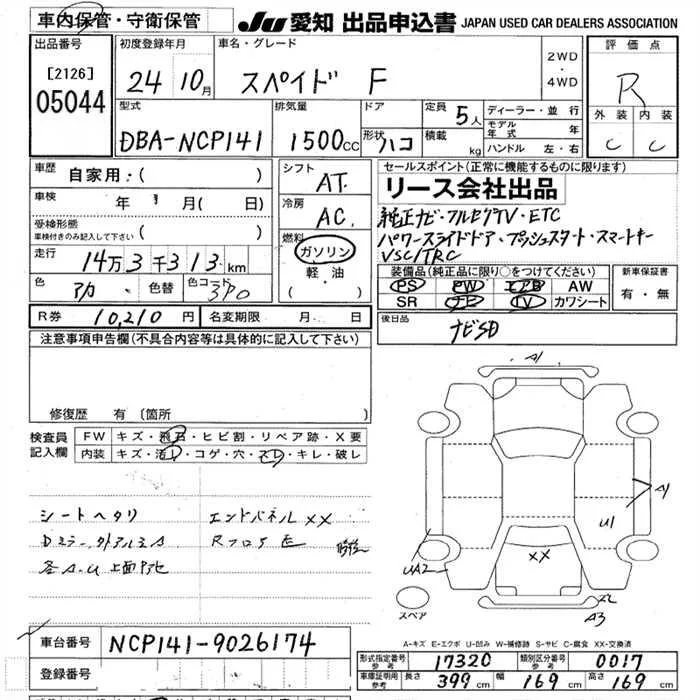 車内保管・守衛保管
JU 愛知 出品申込書 JAPAN USED CAR DEALERS ASSOCIATION
出品番号 初度登録年月 車名・グレード 評価点
[2126] 24 10月 スペイド F 2WD・4WD R
05044 型式 排気量 ドア 定員 5人 ディーラー・並行 外装 内装
DBA-NCP141 1500cc 形状 ハコ 積載 kg モデル年式 年 C C
ハンドル 左・右
車歴 自家用:( ) シフト AT セールスポイント(正常に機能するものに限ります)
車検 年 月( 日) 冷房 AC リース会社出品
受検形態 燃料 純正ナビ・フルセグTV・ETC
車検付きのみ記入して下さい( ) ガソリン パワースライドドア・プッシュスタート・スマートキー
走行 14万3千313km 軽・油 VSC/TRC
色 アカ 色替 色コード 3P0 ( ) 装備品(純正品に限り○をつけてください) 新車保証書
PS PW エアB AW 有・無
SR ナビ TV カワシート
R券 10,210円 名変期限 月 日 後日品 ナビSD
注意事項申告欄(不具合内容等は具体的に記入して下さい)
修復歴 有(箇所
検査員記入欄 FW キズ・飛石・ヒビ割・リペア跡・X要
内装 キズ・汚レ・コゲ・穴・スレ・キレ・破レ
シートヘタリ エンドパネルXX
Dミラー
A1
A1
U1
UA2
XX
A3
スペア
A-キズ E-エクボ U-凹み W-補修跡 S-サビ C-腐食 XX-交換済
車台番号 NCP141-9026174
登録番号
形式指定番号 参考 17320 類別区分番号 参考 0017
車庫証明用 参考 長さ 399cm 幅 169cm 高さ 169cm